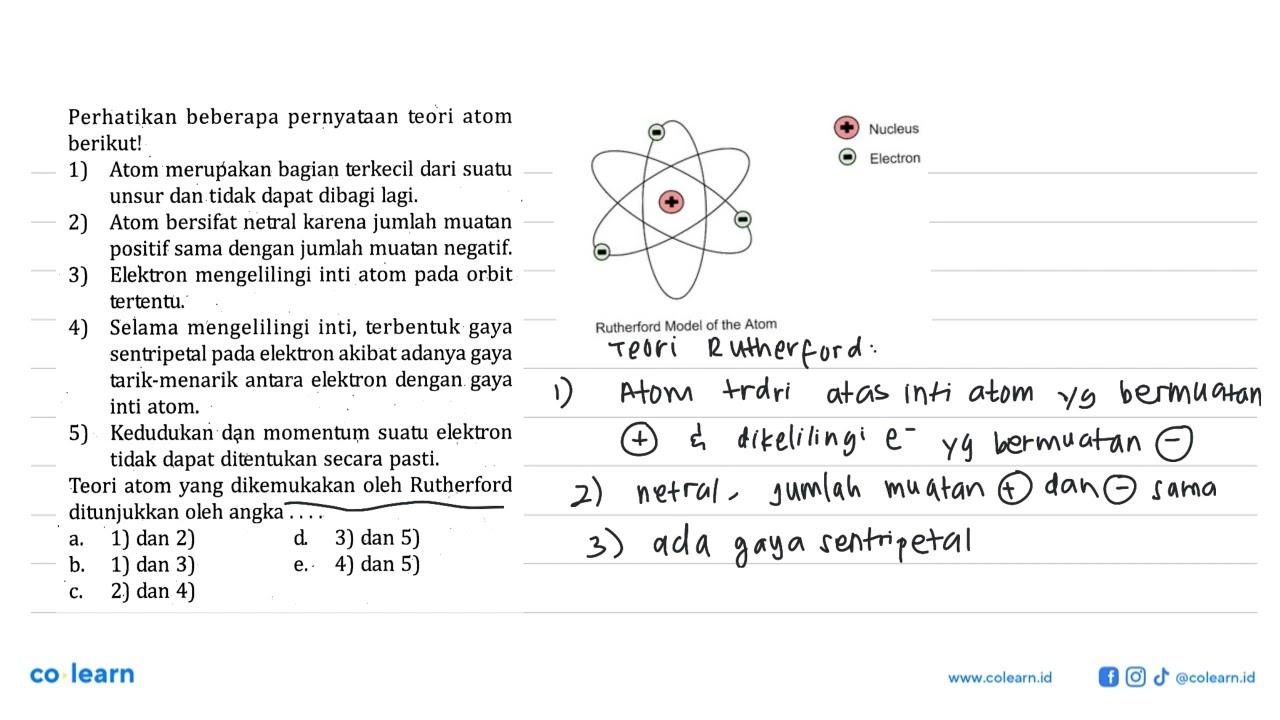 Perhatikan beberapa pernyataan teori atom
berikut!
1) Atom merupakan bagian terkecil dari suatu
unsur dan tidak dapat dibagi lagi.
2) Atom bersifat netral karena jumlah muatan
positif sama dengan jumlah muatan negatif.
3) Elektron mengelilingi inti atom pada orbit
tertentu.
4) Selama mengelilingi inti, terbentuk gaya
sentripetal pada elektron akibat adanya gaya
tarik-menarik antara elektron dengan gaya
inti atom.
5) Kedudukan dan momentum suatu elektron
tidak dapat ditentukan secara pasti.
Teori atom yang dikemukakan oleh Rutherford
ditunjukkan oleh angka . . . .
a. 1) dan 2) d. 3) dan 5)
b. 1) dan 3) e. 4) dan 5)
c. 2) dan 4)
+ Nucleus
- Electron
-
+
-
-
Rutherford Model of the Atom
Teori Rutherford:
1) Atom trdri atas inti atom yg bermuatan
⊕ & dikelilingi e⁻ yg bermuatan ⊖
2) netral, jumlah muatan ⊕ dan ⊖ sama
3) ada gaya sentripetal
co learn
www.colearn.id
@colearn.id